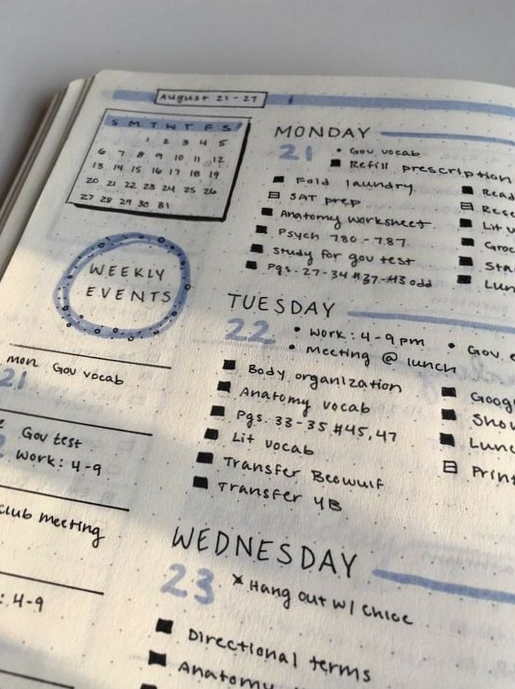 August 21-27
S M T W T F S
1 2 3 4 5
6 7 8 9 10 11 12
13 14 15 16 17 18 19
20 21 22 23 24 25 26
27 28 29 30 31
WEEKLY
EVENTS
mon Gov vocab
21
Gov test
Work: 4-9
club meeting
: 4-9
MONDAY
21
• Gov vocab
Refill prescription
Fold laundry
SAT prep
Anatomy worksheet
Psych 780-787
Study for gov test
Pgs. 27-34 #37-43 odd
Read
Lit
TUESDAY
22
• Work: 4-9pm
• Meeting @ lunch
• Gov
Body organization
Anatomy vocab
Pgs. 33-35 #45,47
Lit vocab
Transfer Beowulf
Transfer 4B
WEDNESDAY
23
* Hang out w/ Chloe
Directional terms
Anatomy